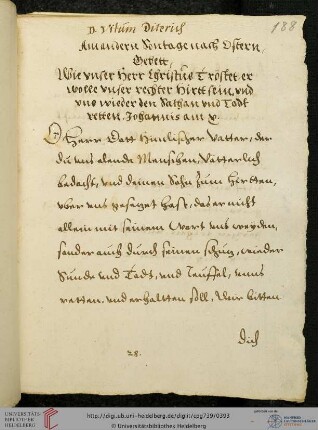 188
D. Vitum Diterich
Am andern Sontage nach Ostern,
Gebett,
Wie vnser Herr Christus Tröstet er
wolle vnser rechter Hirtt sein, vnd
vns wieder den Sathan vnd Todt
retten. Johannis am x.
O Herr Gott Himlischer Vatter, der
du vns elende Menschen, Vätterlich
bedacht, vnd deinen Sohn zum Hirtten,
vber vns gesetzet hast, das er nicht
allein mit seinem Wort vns weyden,
sonder auch durch seinen schutz, wieder
Sünde vnd Todt, vnd Teuffel, vnns
retten, vnd erhaltten soll, Wir bitten
dich
28.
UNIVERSITÄTS-
BIBLIOTHEK
HEIDELBERG
http://digi.ub.uni-heidelberg.de/diglit/cpg739/0393
© Universitätsbibliothek Heidelberg